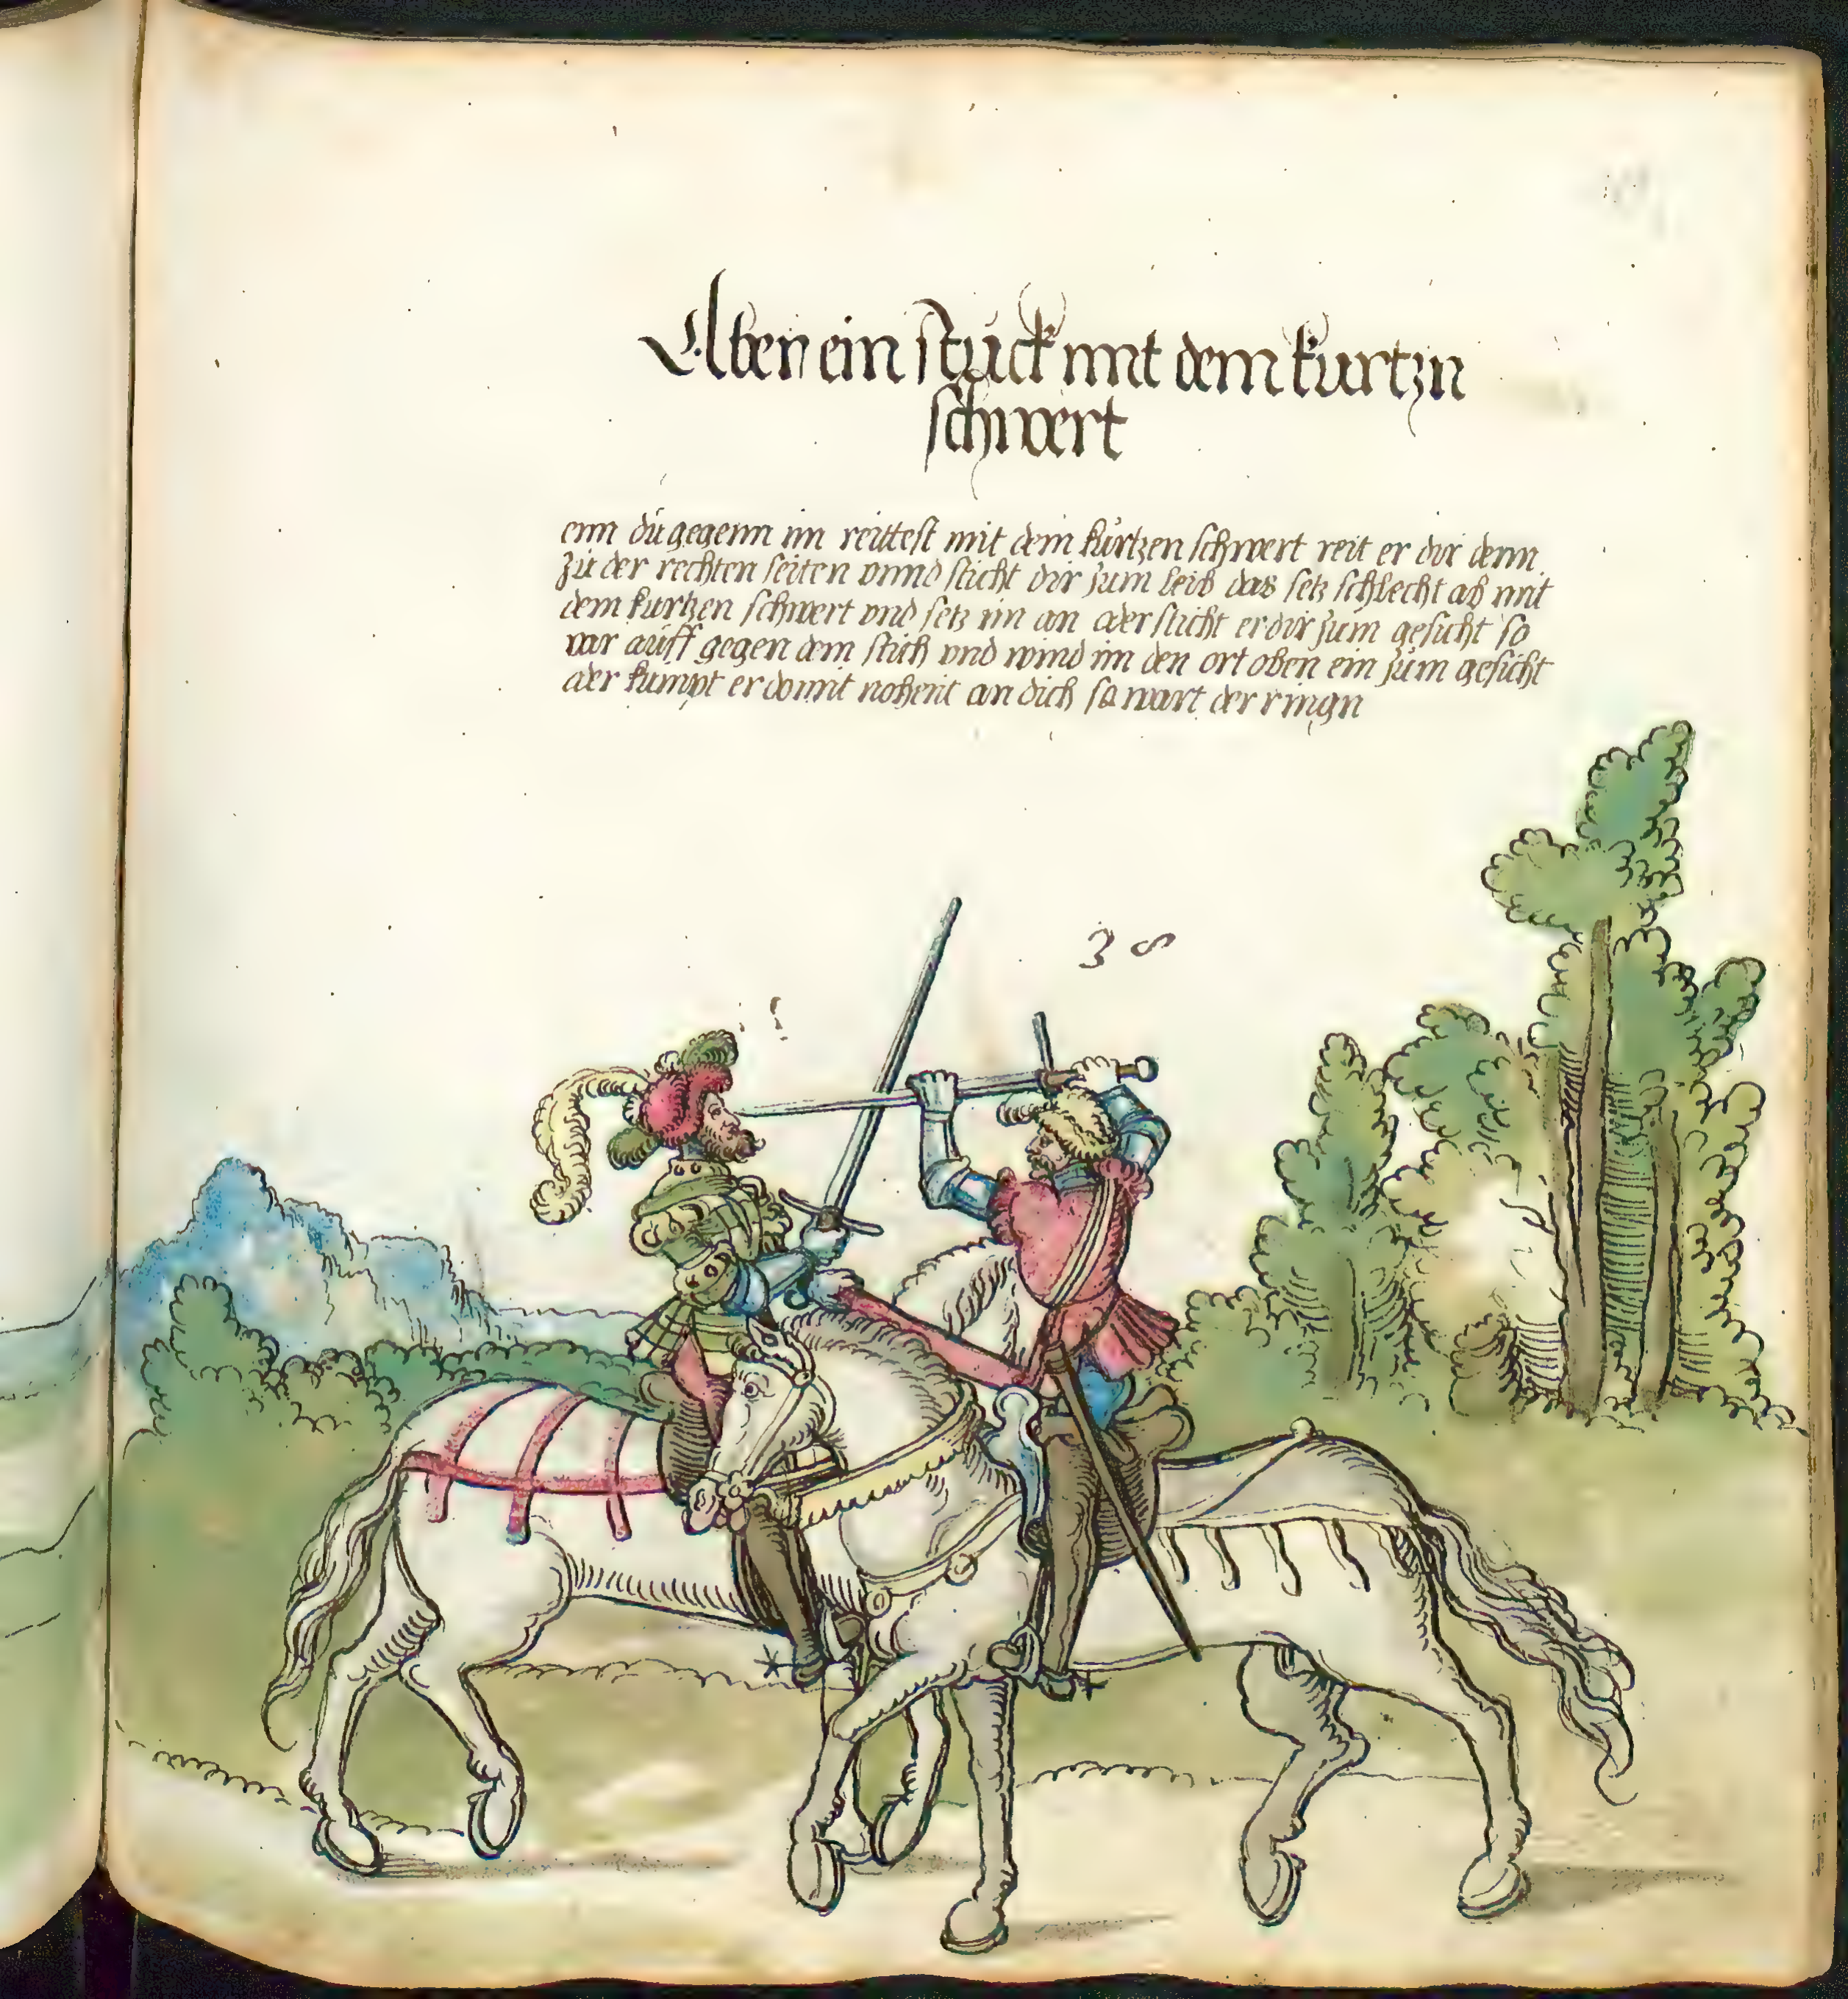 Aben ein stuck mit dem kurtzn
schwert
enn dü gegenn im reittest mit dem kürtzen schwert reit er dir denn
zü der rechten seiten vnnd sticht dir zum leib das setz schlecht ab mit
dem kurtzen schwert vnd setz im an oder sticht er dir zum gesicht so
var auff gegen dem stich vnd wind im den ort oben ein züm gesicht
oder kumpt er domit nohent an dich so wart der ringn
38